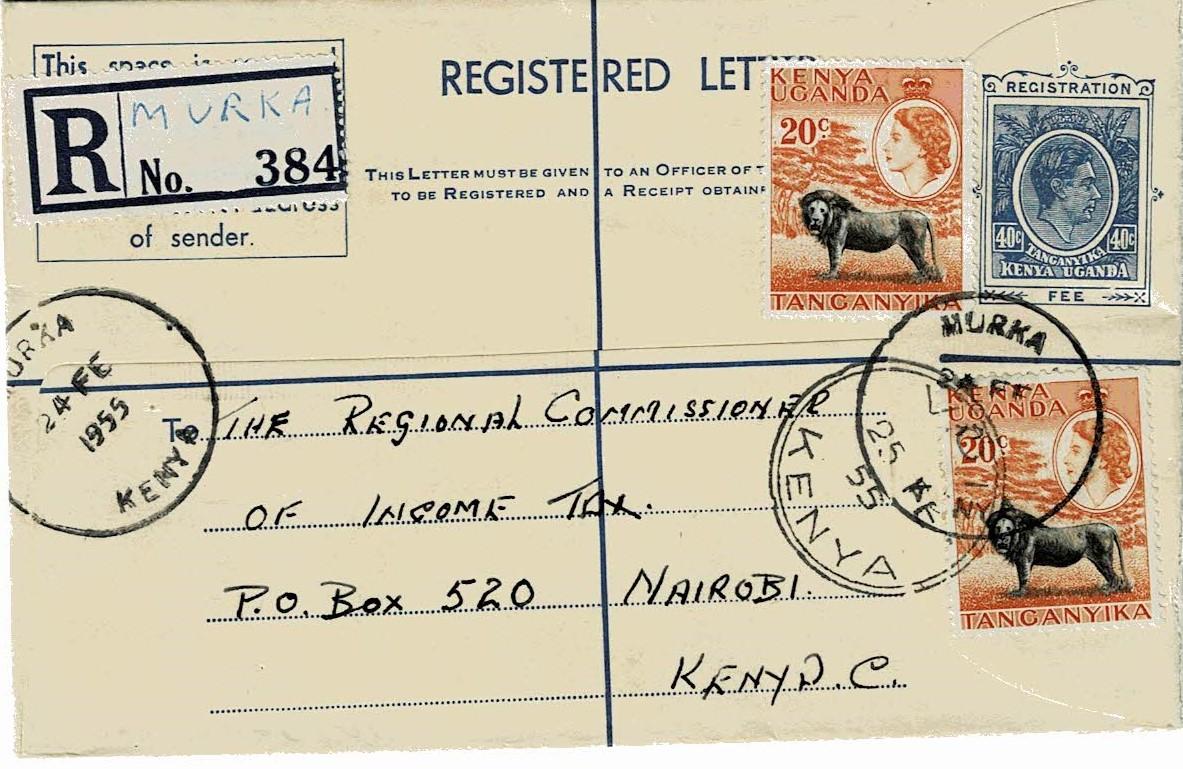 This space is
R MURKA
No. 384
of sender.
REGISTERED
THIS LETTER MUST BE GIVEN TO AN OFFICER OF
TO BE REGISTERED AND A RECEIPT
KENYA
UGANDA
20c
TANGANYIKA
REGISTRATION
40c 40c
TANGANYIKA
KENYA UGANDA
FEE
MURKA
24 FE
1955
KENYA
MURKA
24 FE
KENYA
25
55
KENYA
KENYA
UGANDA
20c
TANGANYIKA
To THE REGIONAL COMMISSIONER
OF INCOME TAX.
P.O. BOX 520 NAIROBI.
KENYA. C.